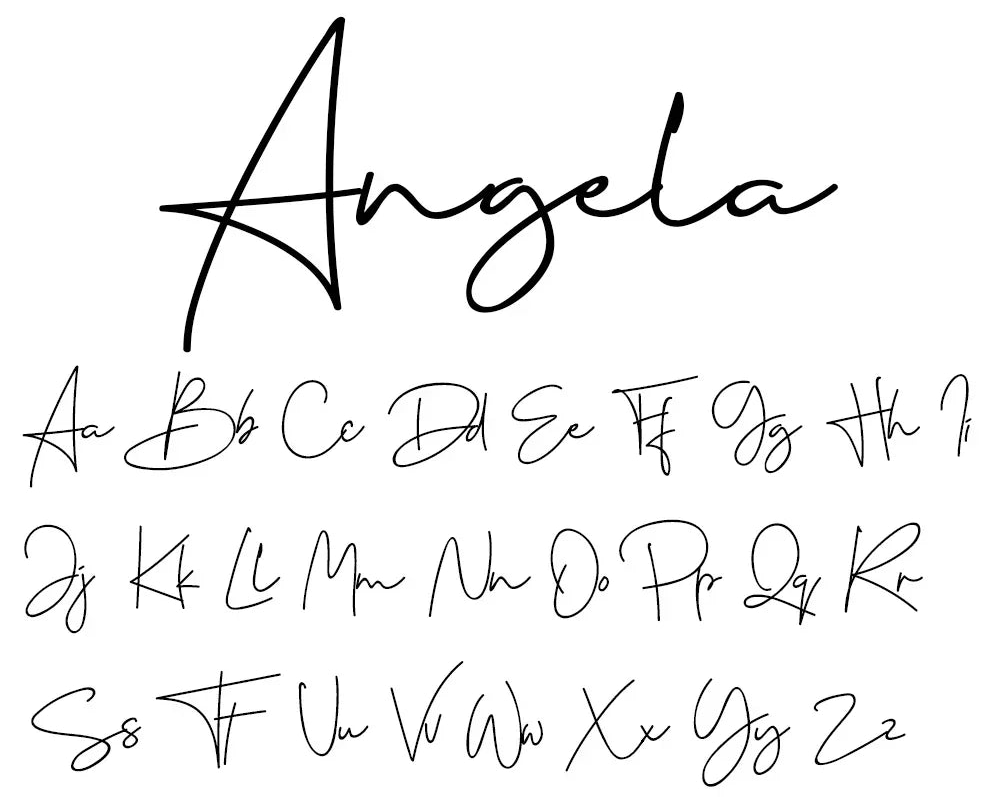 Angela
Aa Bb Cc Dd Ee Ff Gg Hh Ii
Jj Kk Ll Mm Nn Oo Pp Qq Rr
Ss Tt Uu Vv Ww Xx Yy Zz